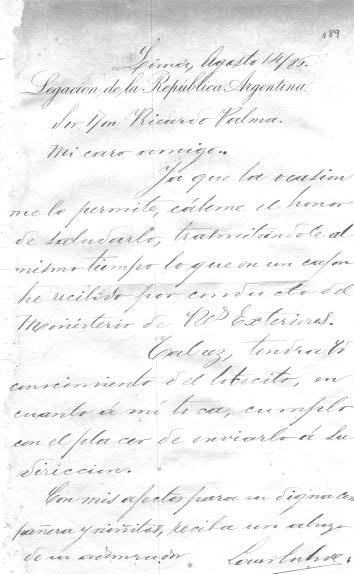 189
Lima, Agosto 14/85.
Legacion de la República Argentina
Sor Don Ricardo Palma.
Mi caro amigo.
Ya que la ocasion
me lo permite, cábeme el honor
de saludarlo, trasmitiéndole al
mismo tiempo lo que en un cajon
he recibido por conducto del
Ministerio de Rs Exteriores.
Talvez, tendrá Ud
conocimiento del librecito, en
cuanto á mi toca, cumplo
con el placer de enviarlo á su
direccion.
Con mis afectos para su digna com
pañera y niñitos, reciba un abrazo
de su admirador